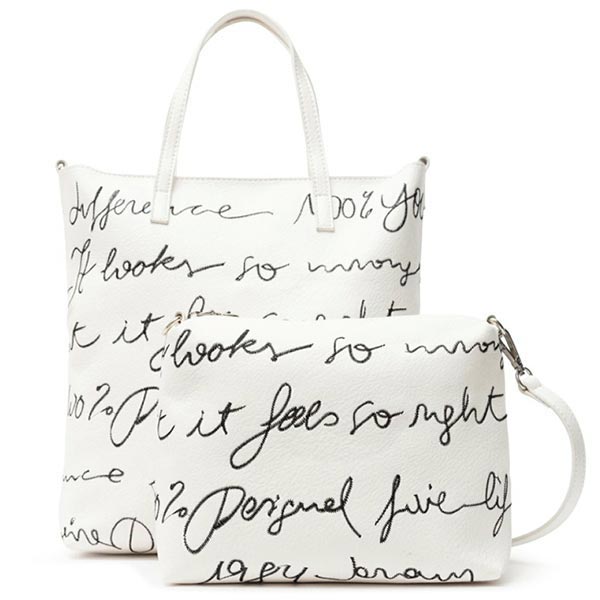 difference 100% you
It looks so wrong
t it f so right
100% D
ence
ine D
looks so wrong
t it feels so right
0% Desigual five lif
1984